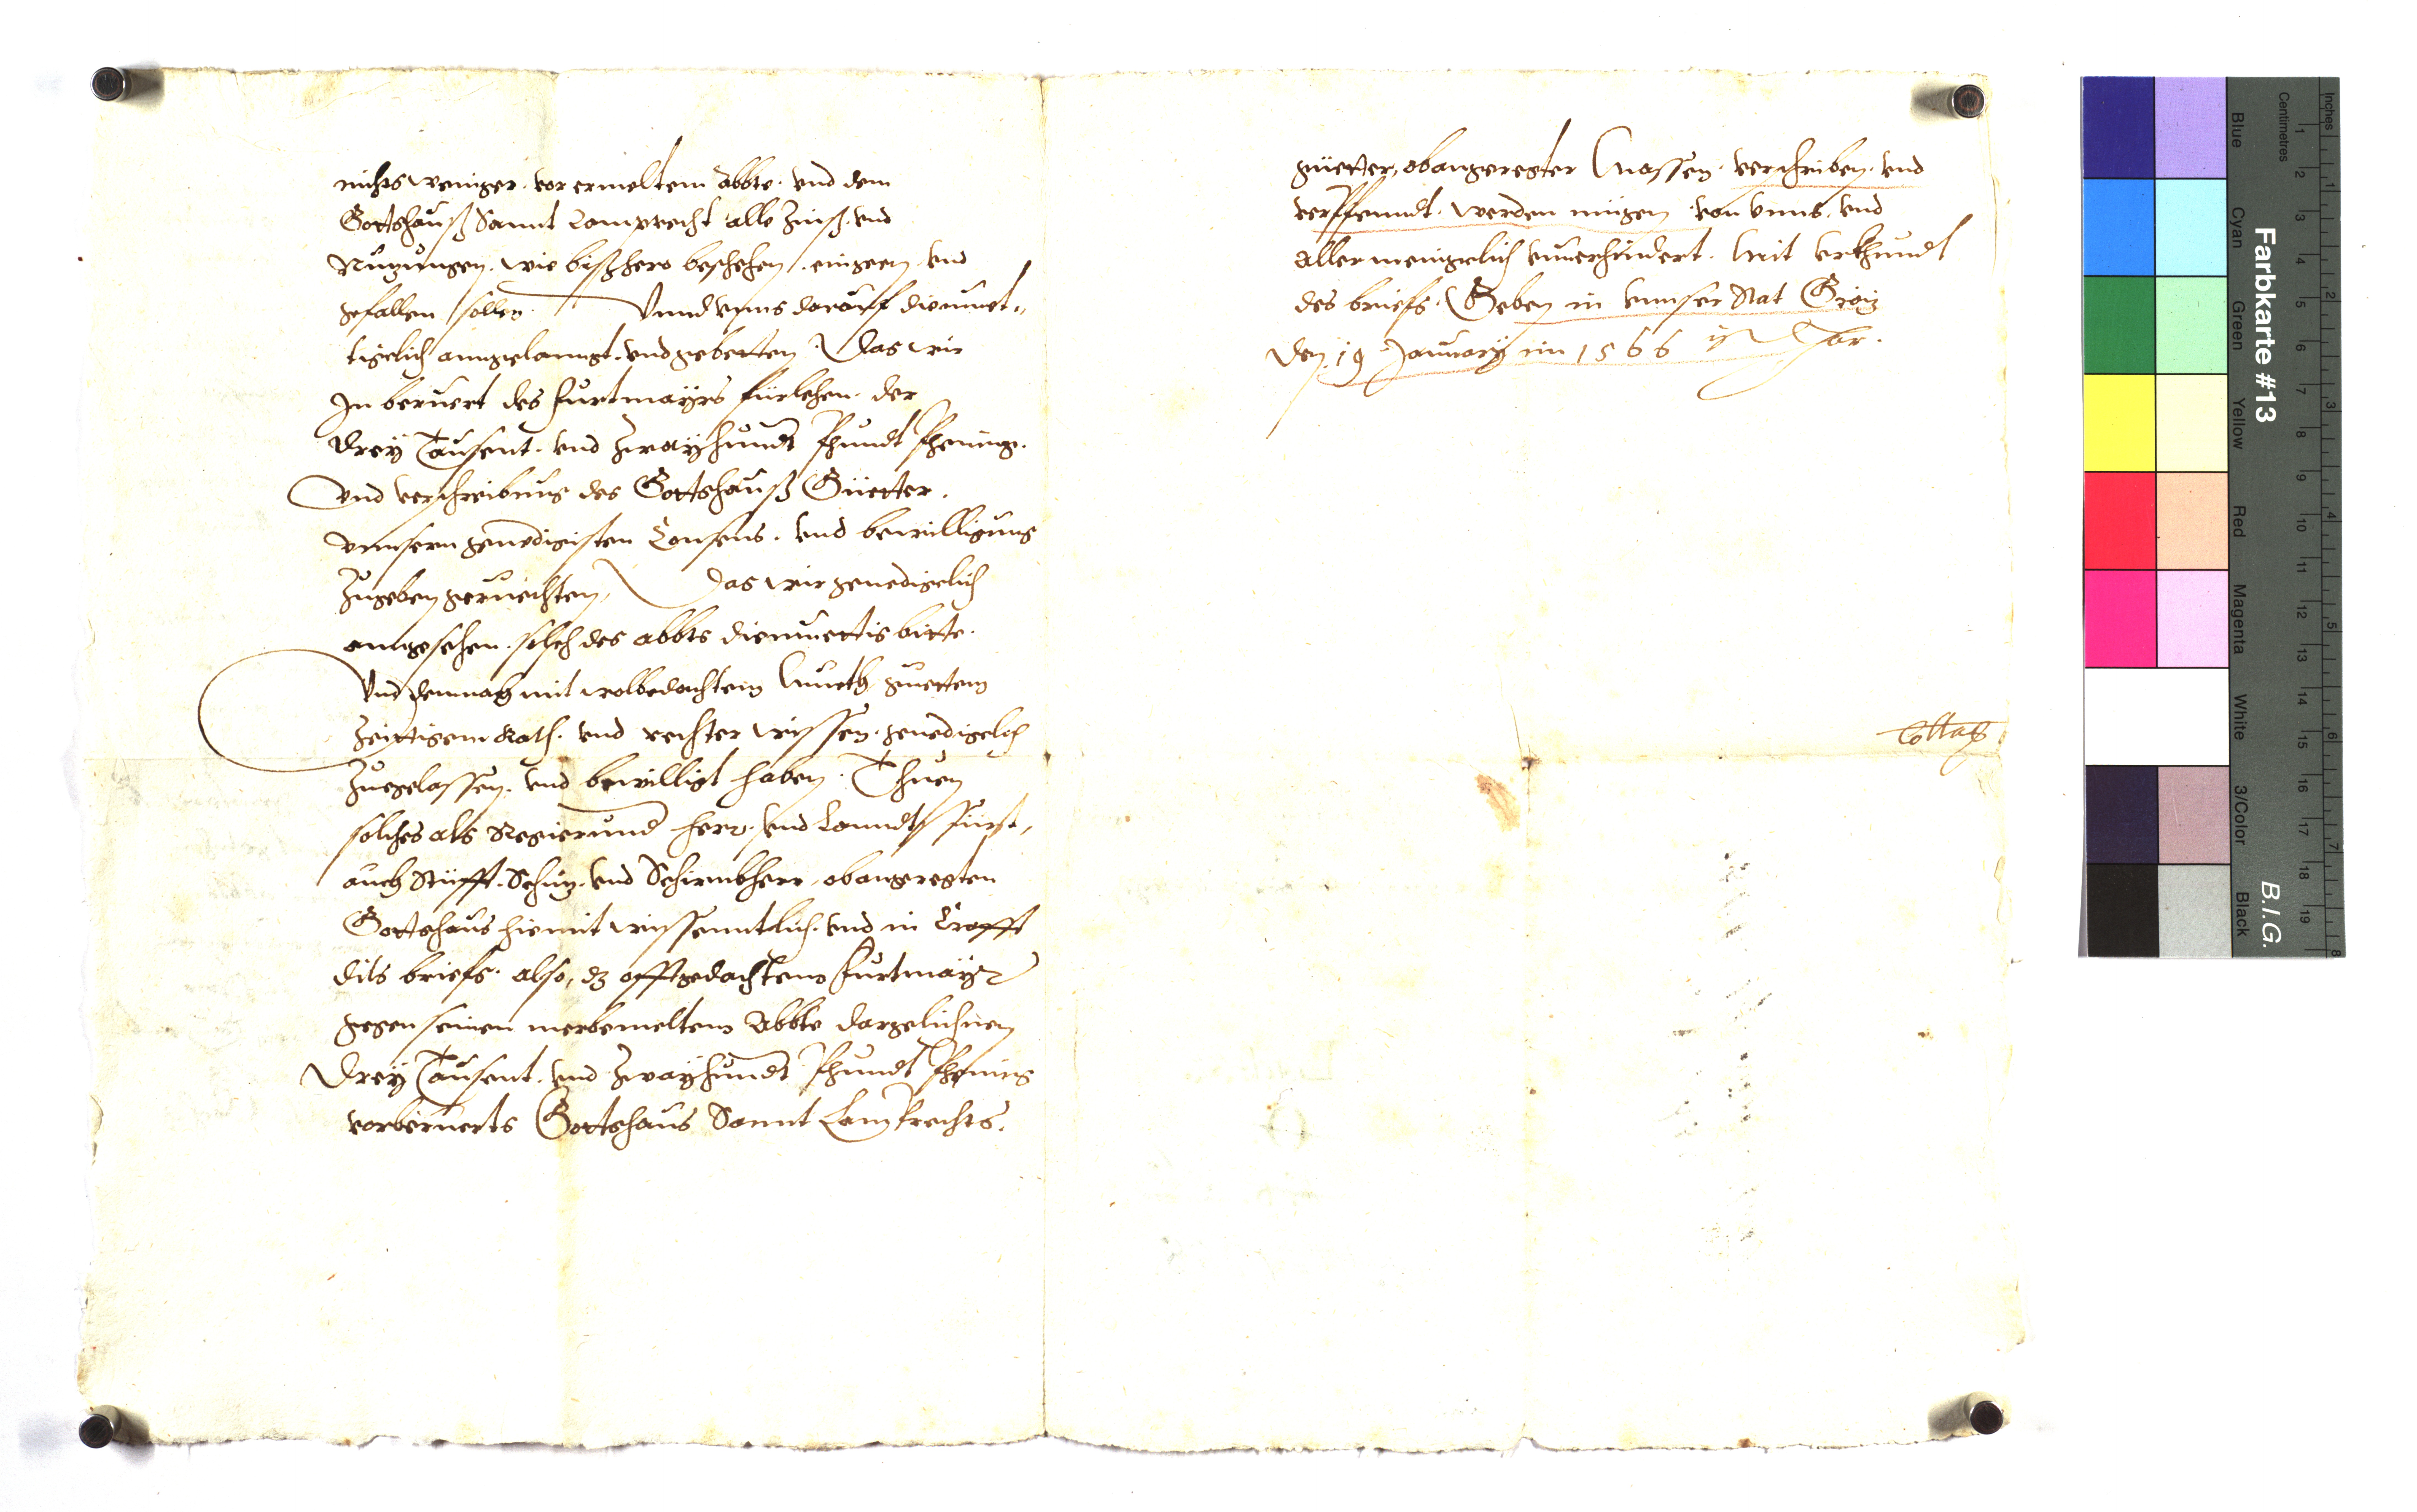 nichts weniger. vor ermeltem Abbte. vnd dem
Gottshauß Sannt Lamprecht alle Zinß. vnd
Nuzungen. wie bißhero beschehen. eingeen vnd
gefallen sollen. Vnnd vnns darauff diemuet„
tigelich anngelanngt. vnd gebetten. Das wir
In beruert des Furtmayrs fürlehen. der
Drey Tausent. vnd Zwayhundt Phundt Phening.
vnd verschreibung des Gottshauß Güetter.
vnnsern genedigisten Consens. vnd bewilligung
Zugeben geruechten, Das wir genedigelich
angesehen. solch des abbts diemuettig bitte.
Vnd demnach mit wolbedachtem Mueth, guettem
Zeittigem Rath. vnd rechter wissen. genedigelich
Zuegelassen. vnd bewilligt haben. Thuen
solches als Regierund herr. vnd Lanndts Fürst,
auch Stüfft. Schuz. vnd Schirmbherr, obangeregten
Gottshaus hiemit wissenntlich. vnd in Crafft
dits briefs. also, dz offtgedachtem Furtmayr
gegen seinen merbemeltem Abbte dargelichnen
Drey Tausent. vnd Zwayhundt Phundt Phening
vorberuerts Gottshaus Sannt Lamprechts.
güetter, obangeregter Massen. verschriben. vnd
verpfenndt. werden mügen. von vnns. vnd
allermenigelich vnuerhindert. Mit vrkhundt
des briefs. Geben in vnnser Stat Gräz
Den. 19 January im 1566 isten Jar.